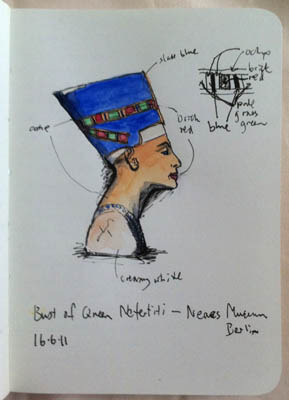 slate blue
ochre
brick
red
ochre
brick
red
blue
pale
grass
green
creamy white
Bust of Queen Nefertiti – Neues Museum
Berlin
16·6·11